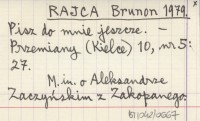 RAJCA Brunon 1979.
Pisz do mnie jeszcze. –
Przemiany (Kielce) 10, nr. 5:
27.
M. in. o Aleksandrze
Zaczyńskim z Zakopanego.